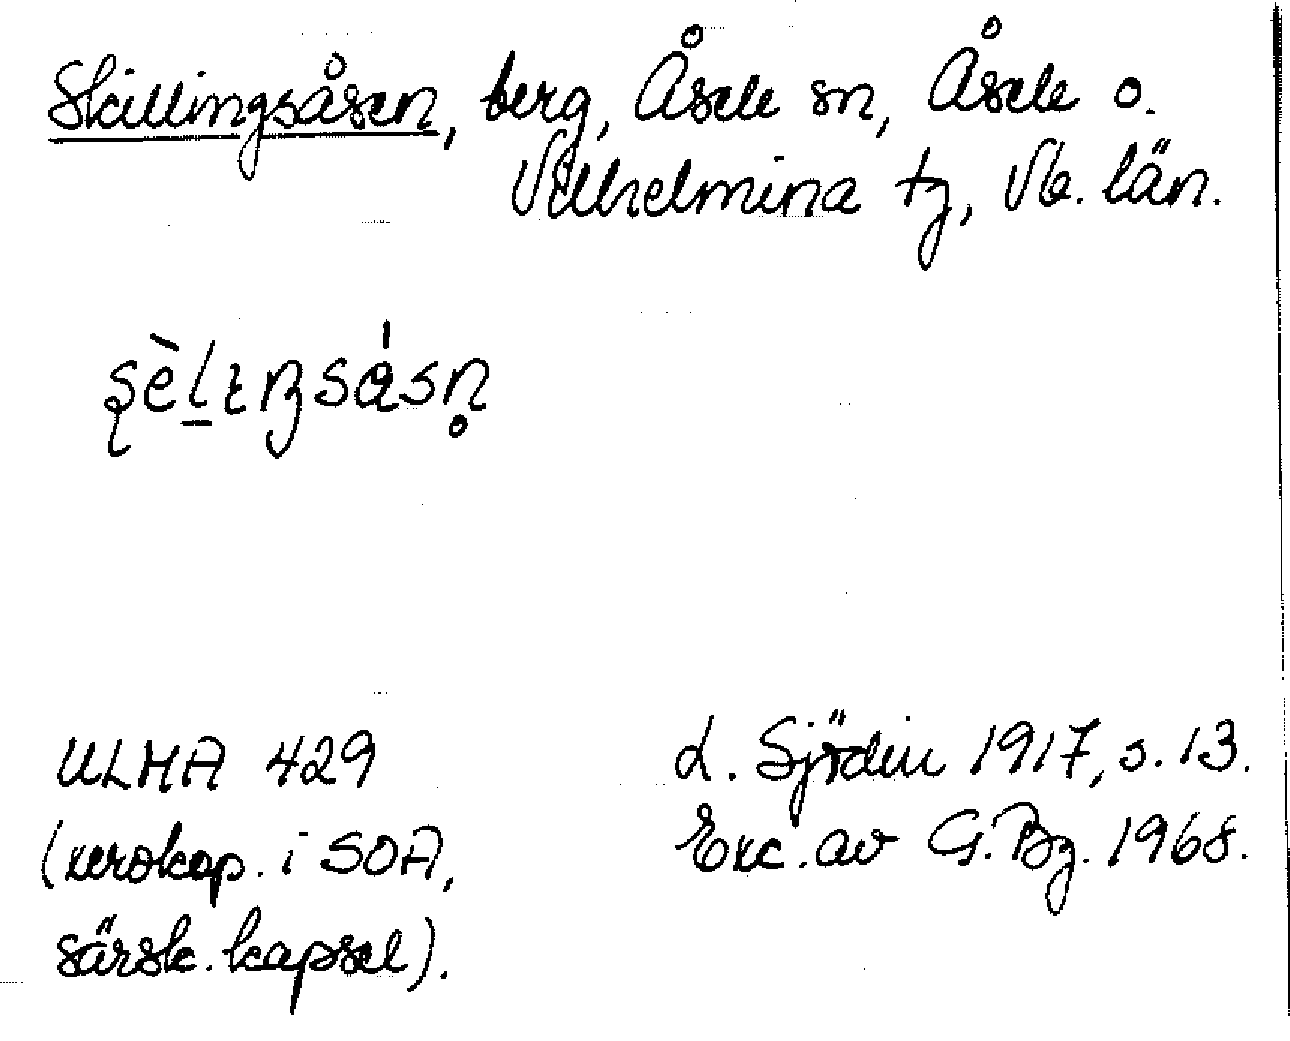 Skillingsåsen, berg, Åsele sn, Åsele o.
Vilhelmina tg, Vb. län.
ULMA 429
(xerokop. i SOA,
särsk. kapsel).
L. Sjödin 1917, s. 13.
Exc. av G. Bg. 1968.